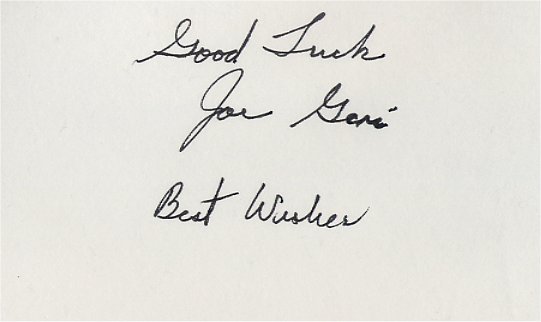 Good Luck
Joe Geri
Best Wishes